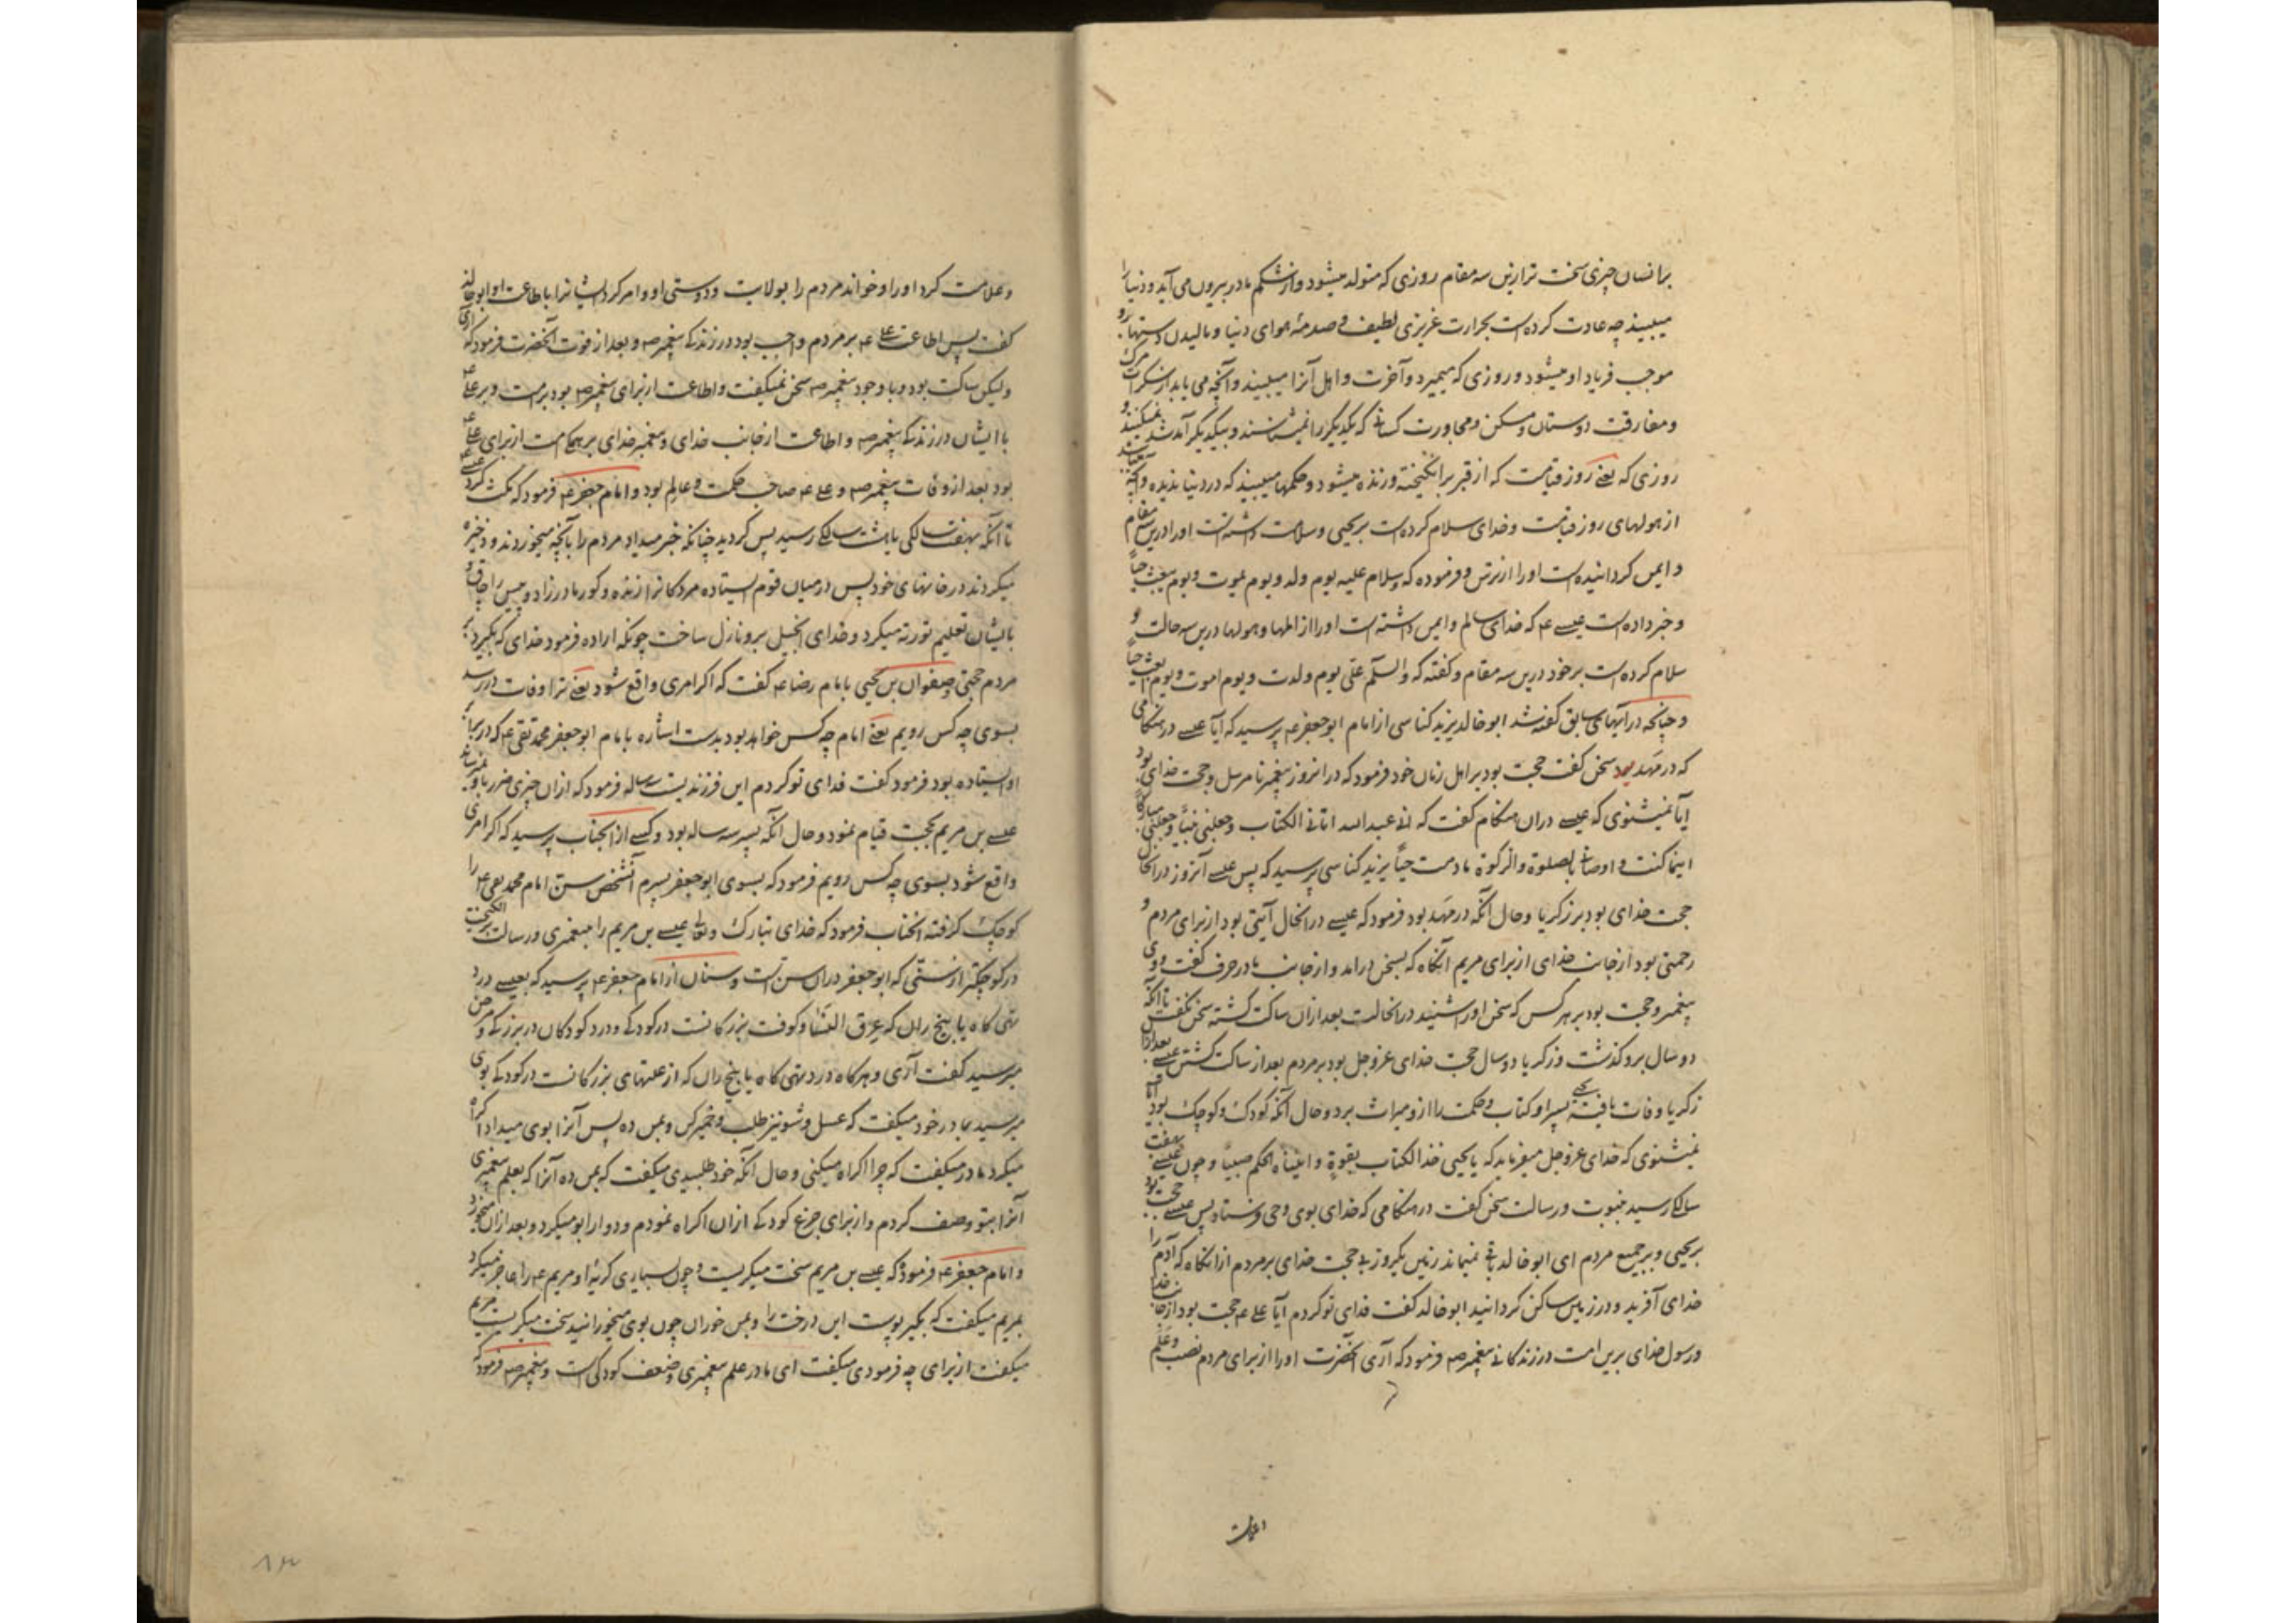 بر انسان چیزی سخت تر ازین سه مقام روزی که متولد میشود و از شکم مادر بیرون می آید و دنیا را
میبیند چه عادت کرده است بحرارت غریزی لطیف و صدمهٔ هوای دنیا و مالیدن دستها
موجب فریاد او میشود و روزی که میمیرد و آخرت و اهل آنرا میبیند و آنچه می یابد از سکرات مرک
و مفارقت دوستان و مسکن و مجاورت کسانی که یکدیگر را نمیشناسند و بیکدیگر آمد شد نمیکنند و
روزی که یعنی روز قیامت که از قبر برانکیخته و زنده میشود و حکمها میبیند که در دنیا ندیده و آنچه
از هولهای روز قیامت و خدای سلام کرده است بر یحیی و سلامت داشته است او را درین سه مقام
و ایمن کردانیده است او را از ترس و فرموده که و سلام علیه یوم ولد و یوم یموت و یوم یبعث حیاً
و خبر داده است عیسے ع که خدای سالم و ایمن داشته است او را از المها و هولها درین سه حالت و
سلام کرده است بر خود درین سه مقام و کفته که والسلم علی یوم ولدت و یوم اموت و یوم ابعث حیاً
و چنانچه در آیهای سابق کفته شد ابو خالد یزید کناسی از امام ابو جعفر ع پرسید که آیا عیسے در هنکامی
که در مهد بود سخن کفت حجت بود بر اهل زمان خود فرمود که در انروز پیغمبر نا مرسل و حجت خدای بود
آیا نمیشنوی که عیسے دران هنکام کفت که انی عبد الله اتانی الکتاب و جعلنی نبیاً و جعلنی مبارکاً
اینما کنت و اوصانی بالصلوة والزکوة ما دمت حیاً یزید کناسی پرسید که پس عیسے آنروز در انحال
حجت خدای بود بر زکریا و حال آنکه در مهد بود فرمود که عیسے در انحال آیتی بود از برای مردم و
رحمتی بود از جانب خدای از برای مریم آنگاه که بسخن درامد و از جانب مادر حرف کفت و وی
پیغمبر و حجت بود بر هر کس که سخن او را شنید در انحالت بعد ازان ساکت کشته سخن نکفت تا آنکه
دو سال برو گذشت و زکریا دو سال حجت خدای عز و جل بود بر مردم بعد از ساکت کشتن عیسے بعد ازان
زکریا وفات یافته یحیی پسر او کتاب و حکمت را ازو میراث برد و حال آنکه کودک و کوچک بود آیا
نمیشنوی که خدای عز و جل میفرماید که یا یحیی خذ الکتاب بقوة و اتیناه الحکم صبیاً و چون عیسے بهفت
سالکی رسید بنبوت و رسالت سخن کفت در هنکامی که خدای بوی وحی فرستاد پس عیسے حجت بود
بر یحیی و بر جمیع مردم ای ابو خالد باقی نمیماند زمین یکروز بی حجت خدای بر مردم از انکاه که آدم را
خدای آفرید و در زمین ساکن کردانید ابو خالد کفت فدای تو کردم آیا علی ع حجت بود از جانب خدا
و رسول خدای برین امت در زندکانی پیغمبر ص فرمود که آری آنحضرت او را از برای مردم نصب و علم
و علامت
و علامت کرد او را و خواند مردم را بولایت و دوستی او و امر کرد ایشانرا باطاعت او ابو خالد
کفت پس اطاعت علی ع بر مردم واجب بود در زندکی پیغمبر ص و بعد از فوت آنحضرت فرمود که آری
ولیکن ساکت بود و با وجود پیغمبر ص سخن نمیکفت و اطاعت از برای پیغمبر ص بود بر امت و بر علی ع
با ایشان در زندکی پیغمبر ص و اطاعت از جانب خدای و پیغمبر خدای بر همکی امت از برای علی ع
بود بعد از وفات پیغمبر ص و علی ع صاحب حکمت و عالم بود و امام جعفر ع فرمود که مکث کرد عیسے ع
تا آنکه بهفت سالکی یا هشت سالکی رسید پس کردید چنانکه خبر میداد مردم را بآنچه میخوردند و ذخیره
میکردند در خانهای خود پس در میان قوم ایستاده مردکانرا زنده و کور مادرزاد و پیس را چاق و
بایشان تعلیم توریة میکرد و خدای انجیل برو نازل ساخت چونکه اراده فرمود خدای که بگیرد بر
مردم حجتی و صفوان بن یحیی بامام رضا ع کفت که اکر امری واقع شود یعنی ترا وفات در رسد
بسوی چه کس رویم یعنی امام چه کس خواهد بود بدست اشاره بامام ابو جعفر محمد تقی ع که در برابر
او ایستاده بود فرمود کفت فدای تو کردم این فرزندیست سه ساله فرمود که ازان چیزی ضرر باو نمیرساند
عیسے بن مریم بحجت قیام نمود و حال آنکه پسر سه ساله بود و کسے از انجناب پرسید که اکر امری
واقع شود بسوی چه کس رویم فرمود که بسوی ابو جعفر پسرم آنشخص سن امام محمد تقی ع را
کوچک کرفته انجناب فرمود که خدای تبارک و تعالی عیسے بن مریم را به پیغمبری و رسالت برانکیخت
در کوچکتر از سنی که ابو جعفر دران سن است و سنان از امام جعفر ع پرسید که بعیسے درد
تهی کاه یا بیخ ران که عرق النسا و کوفت بزرکانست در کودکی و درد کودکان در بزرکی و مرض
میرسید کفت آری و هرکاه درد تهی کاه یا بیخ ران که از علتهای بزرکانست در کودکی بوی
میرسید بمادر خود میکفت که عسل و شونیز طلب و خمیر کن و بمن ده پس آنرا بوی میداد اکراه
میکرد مادر میکفت که چرا اکراه میکنی و حال آنکه خود طلبیدی میکفت که بمن ده آنرا که بعلم پیغمبری
آنرا بتو وصف کردم و از برای جزع کودکی ازان اکراه نمودم و دوا را بو میکرد و بعد ازان میخورد
و امام جعفر ع فرمود که عیسے بن مریم سخت میکریست و چون بسیاری کریهٔ او مریم ع را عاجز میکرد
بمریم میکفت که بکیر پوست این درخت را و بمن خوران چون بوی میخورانید سخت میکریست مریم
میکفت از برای چه فرمودی میکفت ای مادر علم پیغمبری و ضعف کودکی است و پیغمبر ص فرمود که